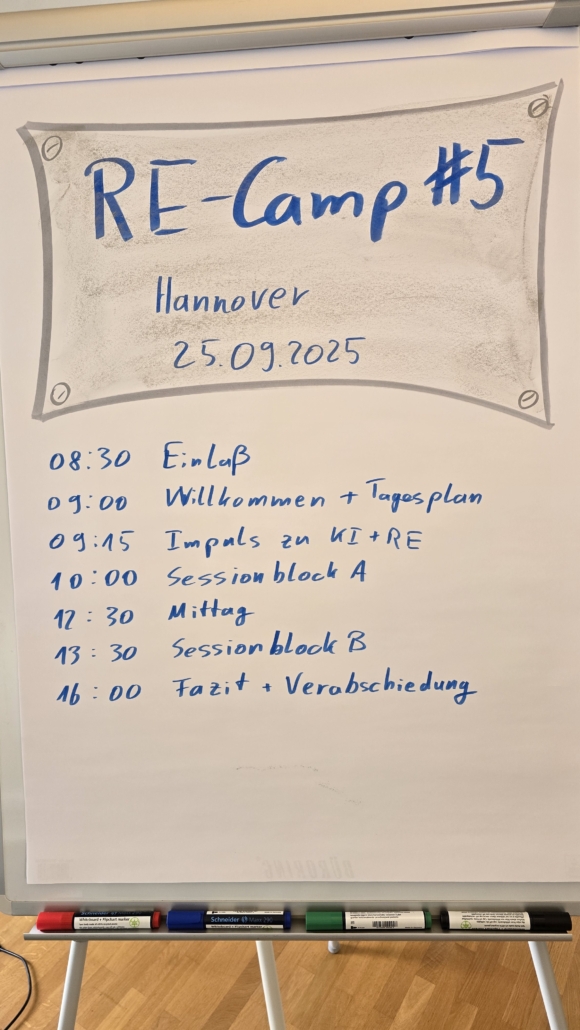 RE-Camp #5
Hannover
25.09.2025
08:30 Einlaß
09:00 Willkommen + Tagesplan
09:15 Impuls zu KI+RE
10:00 Sessionblock A
12:30 Mittag
13:30 Sessionblock B
16:00 Fazit + Verabschiedung
Schneider